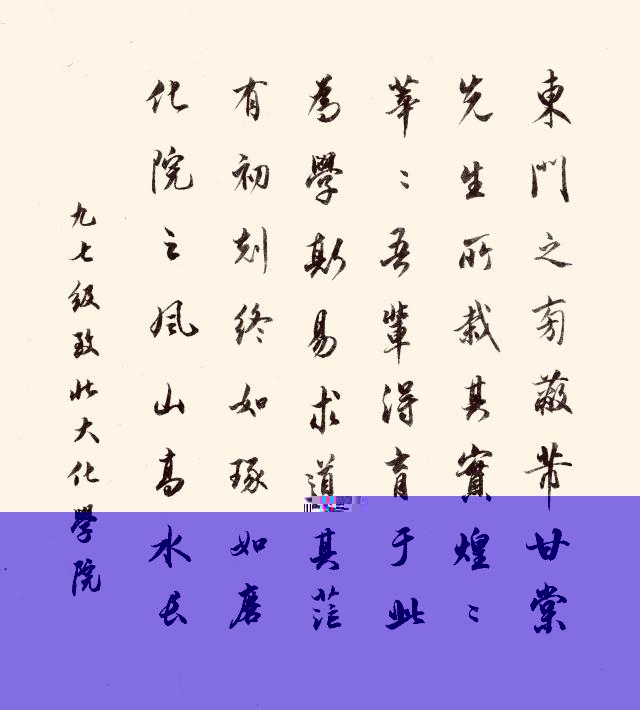 東門之南蔽芾甘棠
先生所栽其實煌〻
莘〻吾輩得育于此
為學斯易求道其茫
有初刻終如琢如磨
化院之風山高水長
九七級致北大化學院